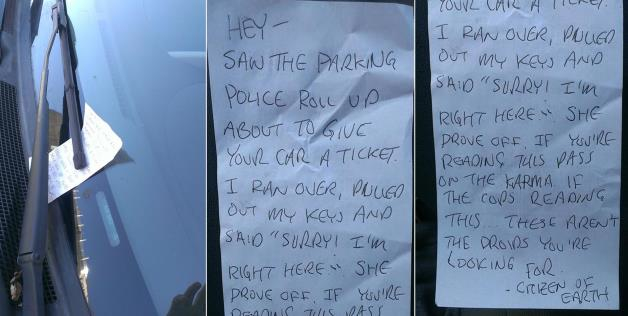 HEY -
SAW THE PARKING
POLICE ROLL UP
ABOUT TO GIVE
YOUR CAR A TICKET.
I RAN OVER, PULLED
OUT MY KEYS AND
SAID "SORRY! I'M
RIGHT HERE." SHE
DROVE OFF. IF YOU'RE
READING THIS PASS
YOUR CAR A TICKET.
I RAN OVER, PULLED
OUT MY KEYS AND
SAID "SORRY! I'M
RIGHT HERE." SHE
DROVE OFF. IF YOU'RE
READING THIS PASS
ON THE KARMA. IF
THE COPS READING
THIS... THESE AREN'T
THE DROIDS YOU'RE
LOOKING FOR.
- CITIZEN OF
EARTH